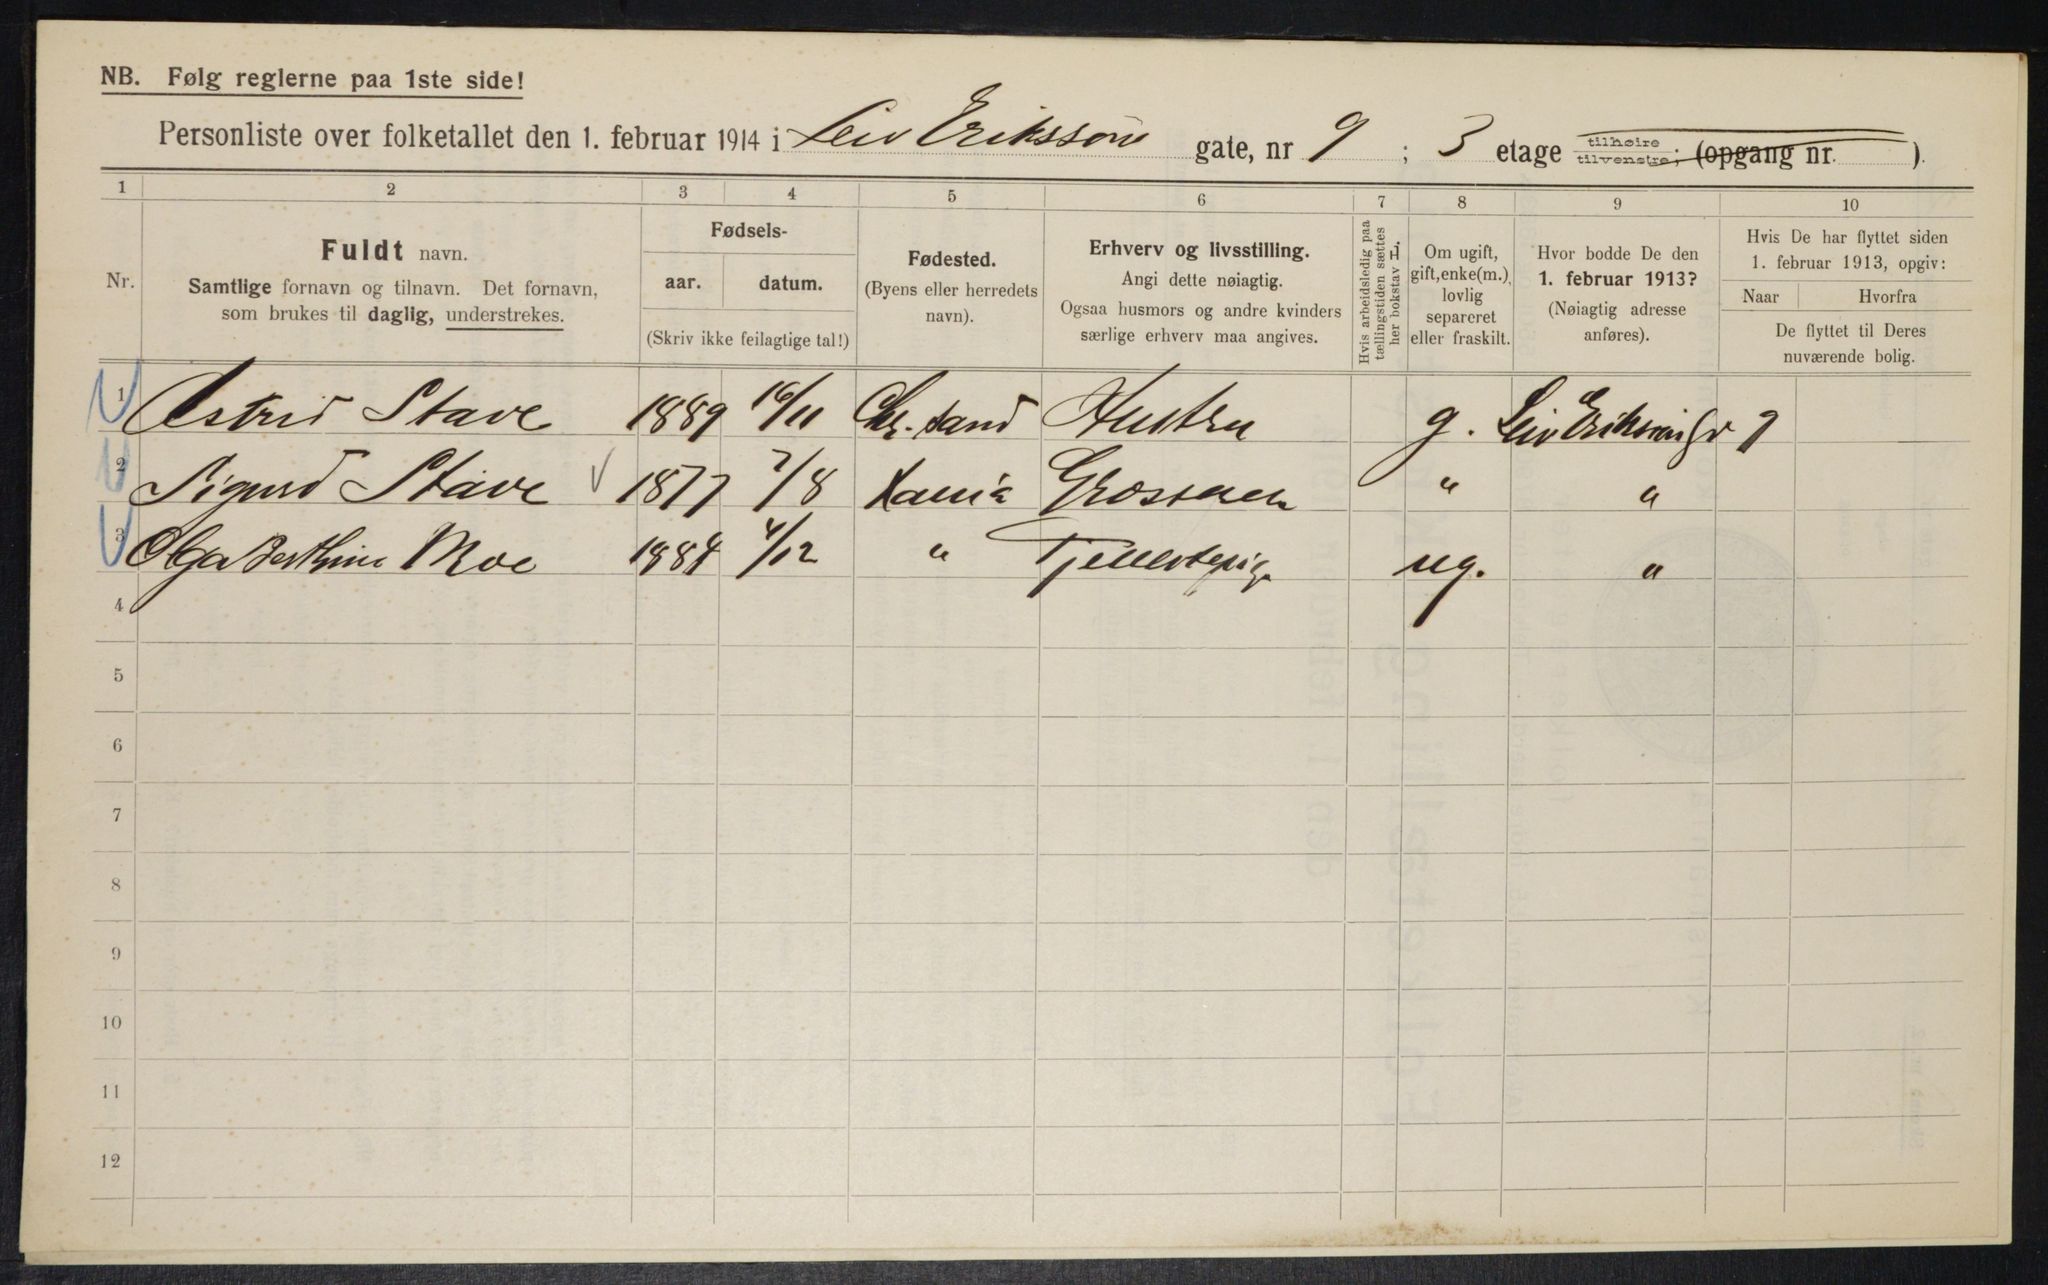 NB. Følg reglerne paa 1ste side!
Personliste over folketallet den 1. februar 1914 i Leiv Erikssøns gate, nr 9 ; 3 etage tilhøire tilvenstre; (opgang nr. ).
1 2 3 4 5 6 7 8 9 10
Nr.
Fuldt navn.
Samtlige fornavn og tilnavn. Det fornavn,
som brukes til daglig, understrekes.
Fødsels-
aar. datum.
(Skriv ikke feilagtige tal!)
Fødested.
(Byens eller herredets
navn).
Erhverv og livsstilling.
Angi dette nøiagtig.
Ogsaa husmors og andre kvinders
særlige erhverv maa angives.
Hvis arbeidsledig paa
tællingstiden sættes
her bokstav L.
Om ugift,
gift, enke(m.),
lovlig
separeret
eller fraskilt.
Hvor bodde De den
1. februar 1913?
(Nøiagtig adresse
anføres).
Hvis De har flyttet siden
1. februar 1913, opgiv:
Naar Hvorfra
De flyttet til Deres
nuværende bolig.
1 Astrid Stave 1889 16/11 Chr.sand Hustru g. Leiv Eriksøns g 9
2 Sigurd Stave 1877 7/8 Xania Grosserer " "
3 Olga Berthine Moe 1884 4/12 " Tjenestepige ug. "
4
5
6
7
8
9
10
11
12